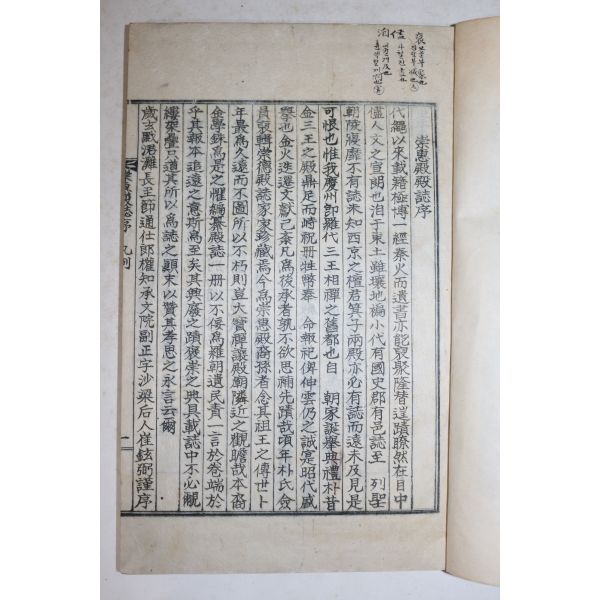 崇惠殿殿誌序
代繩以來載籍極博一經秦火而遺書亦能裒聚隆替遑蹟瞭然在目中
儘人文之宣朗也洎于東土雖壤地褊小代有國史郡有邑誌至 列聖
朝陵寢靡不有誌未知西京之檀君箕子兩殿亦必有誌而遠未及見是
可恨也惟我慶州卽羅代三王相禪之舊都也自 朝家誕擧典禮朴昔
金三王之殿鼎足而峙祝冊牲幣奉 命報祀俾伸雲仍之誠寔昭代盛
擧也金火迭遷文獻已紊凡爲後承者孰不欲思補先蹟哉頃年朴氏僉
員裒輯崇德殿誌家家珍藏焉今爲崇惠殿裔孫者念其祖王之傳世卜
年最爲久遠而不圖所以不朽則豈大實禪讓殿朝隣近之觀瞻哉本裔
金學銖爲是之懼編纂殿誌一册以不佞爲羅朝遺民責一言於卷端於
乎其報本追遠之意斯爲至矣其興廢之蹟褒崇之典具載誌中不必覼
縷架疊只道其所以爲誌之顚末以贊其孝思之永言云爾
歲玄黓涒灘長王師通仕郎權知承文院副正字沙梁后人崔鉉弼謹序
凡例
一